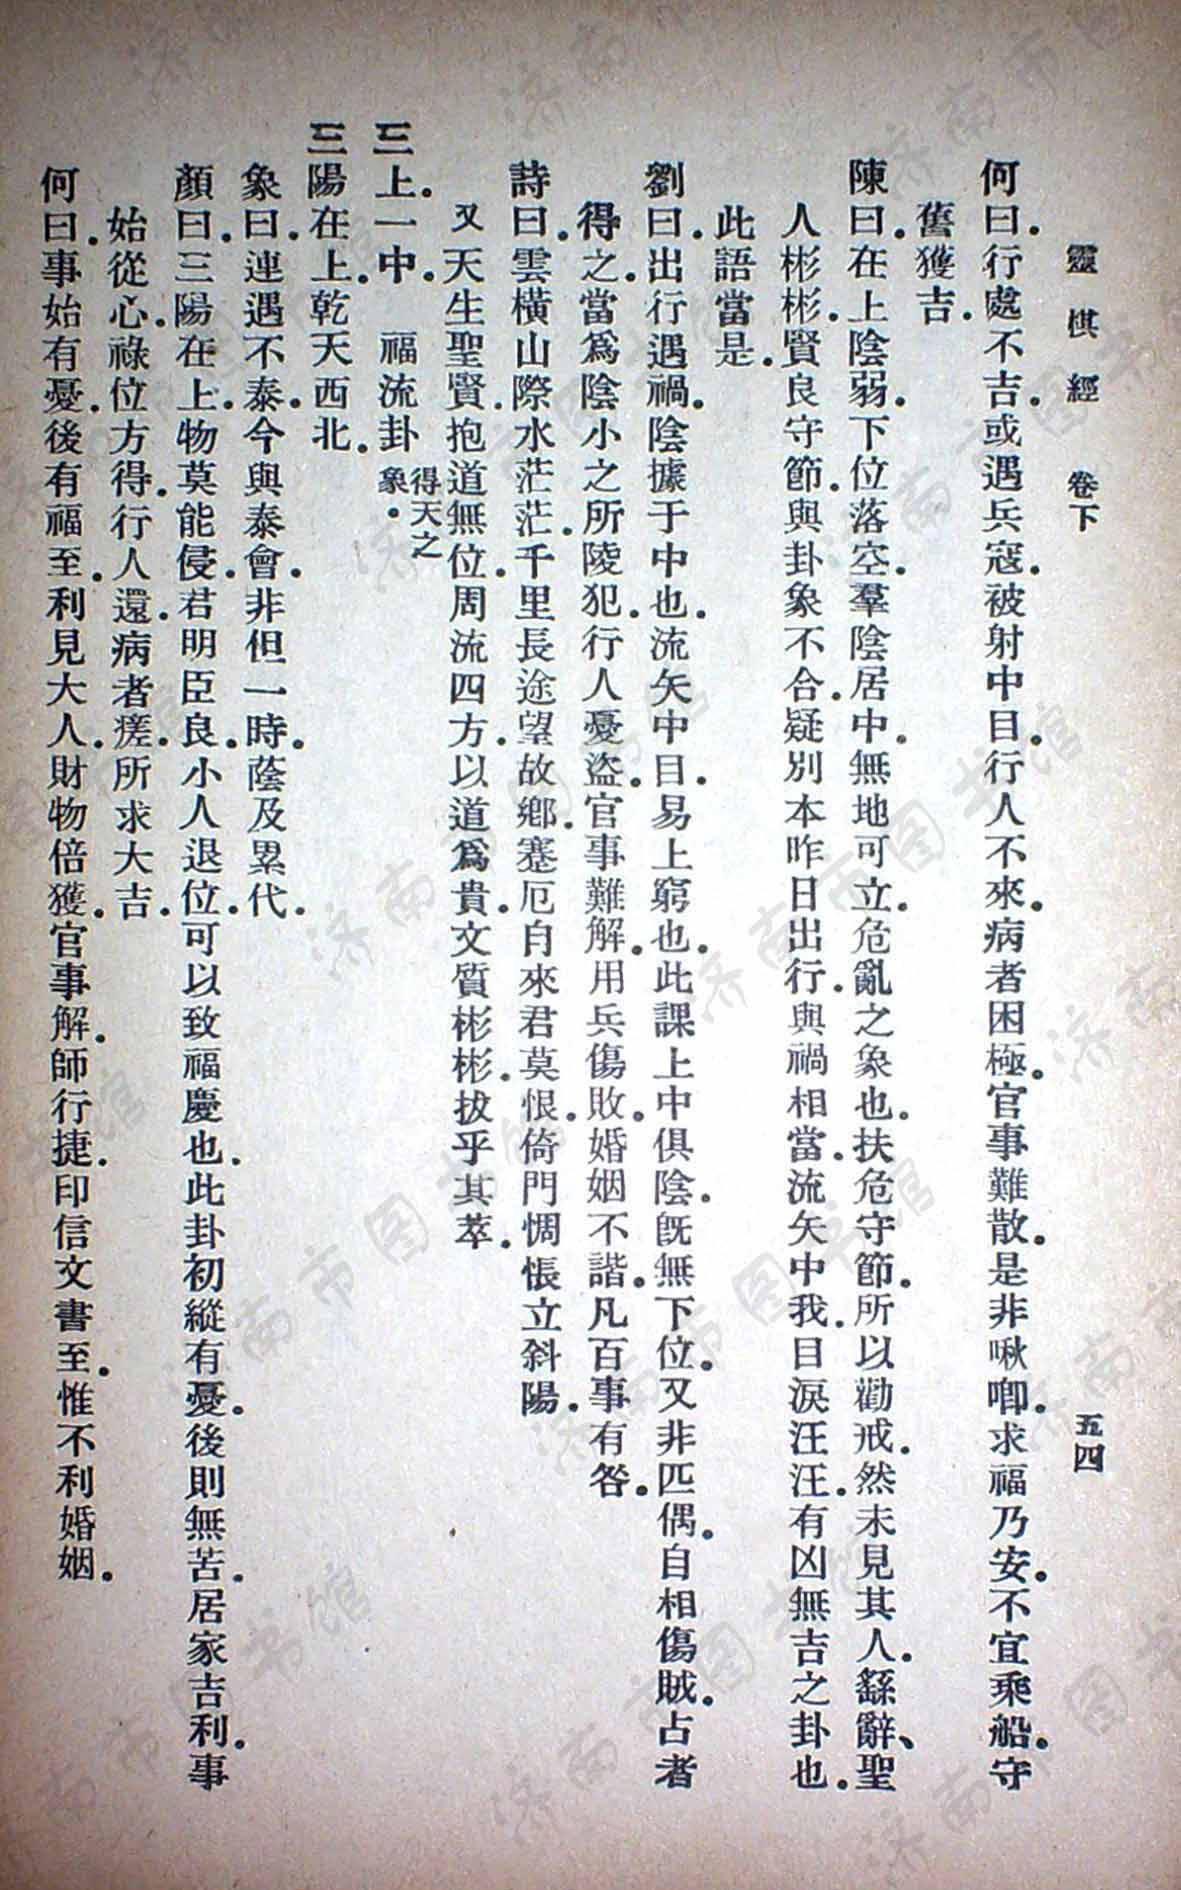 靈棋經 卷下 五四
何曰。行處不吉。或遇兵寇。被射中目。行人不來。病者困極。官事難散。是非啾唧。求福乃安。不宜乘船。守
舊獲吉。
陳曰。在上陰弱。下位落空。羣陰居中。無地可立。危亂之象也。扶危守節。所以勸戒。然未見其人。繇辭、聖
人彬彬。賢良守節。與卦象不合。疑別本昨日出行。與禍相當。流矢中我。目淚汪汪。有凶無吉之卦也。
此語當是。
劉曰。出行遇禍。陰據于中也。流矢中目。易上窮也。此課上中俱陰。既無下位。又非匹偶。自相傷賊。占者
得之。當爲陰小之所陵犯。行人憂盜。官事難解。用兵傷敗。婚姻不諧。凡百事有咎。
詩曰。雲橫山際水茫茫。千里長途望故鄉。蹇厄自來君莫恨。倚門惆悵立斜陽。
又 天生聖賢。抱道無位。周流四方。以道爲貴。文質彬彬。拔乎其萃。
三上。一中。 福流卦 得天之象。
三陽在上。乾天西北。
象曰。連遇不泰。今與泰會。非但一時。蔭及累代。
顏曰。三陽在上。物莫能侵。君明臣良。小人退位。可以致福慶也。此卦初縱有憂。後則無苦。居家吉利。事
始從心。祿位方得。行人還。病者瘥。所求大吉。
何曰。事始有憂。後有福至。利見大人。財物倍獲。官事解。師行捷。印信文書至。惟不利婚姻。
济南市图书馆